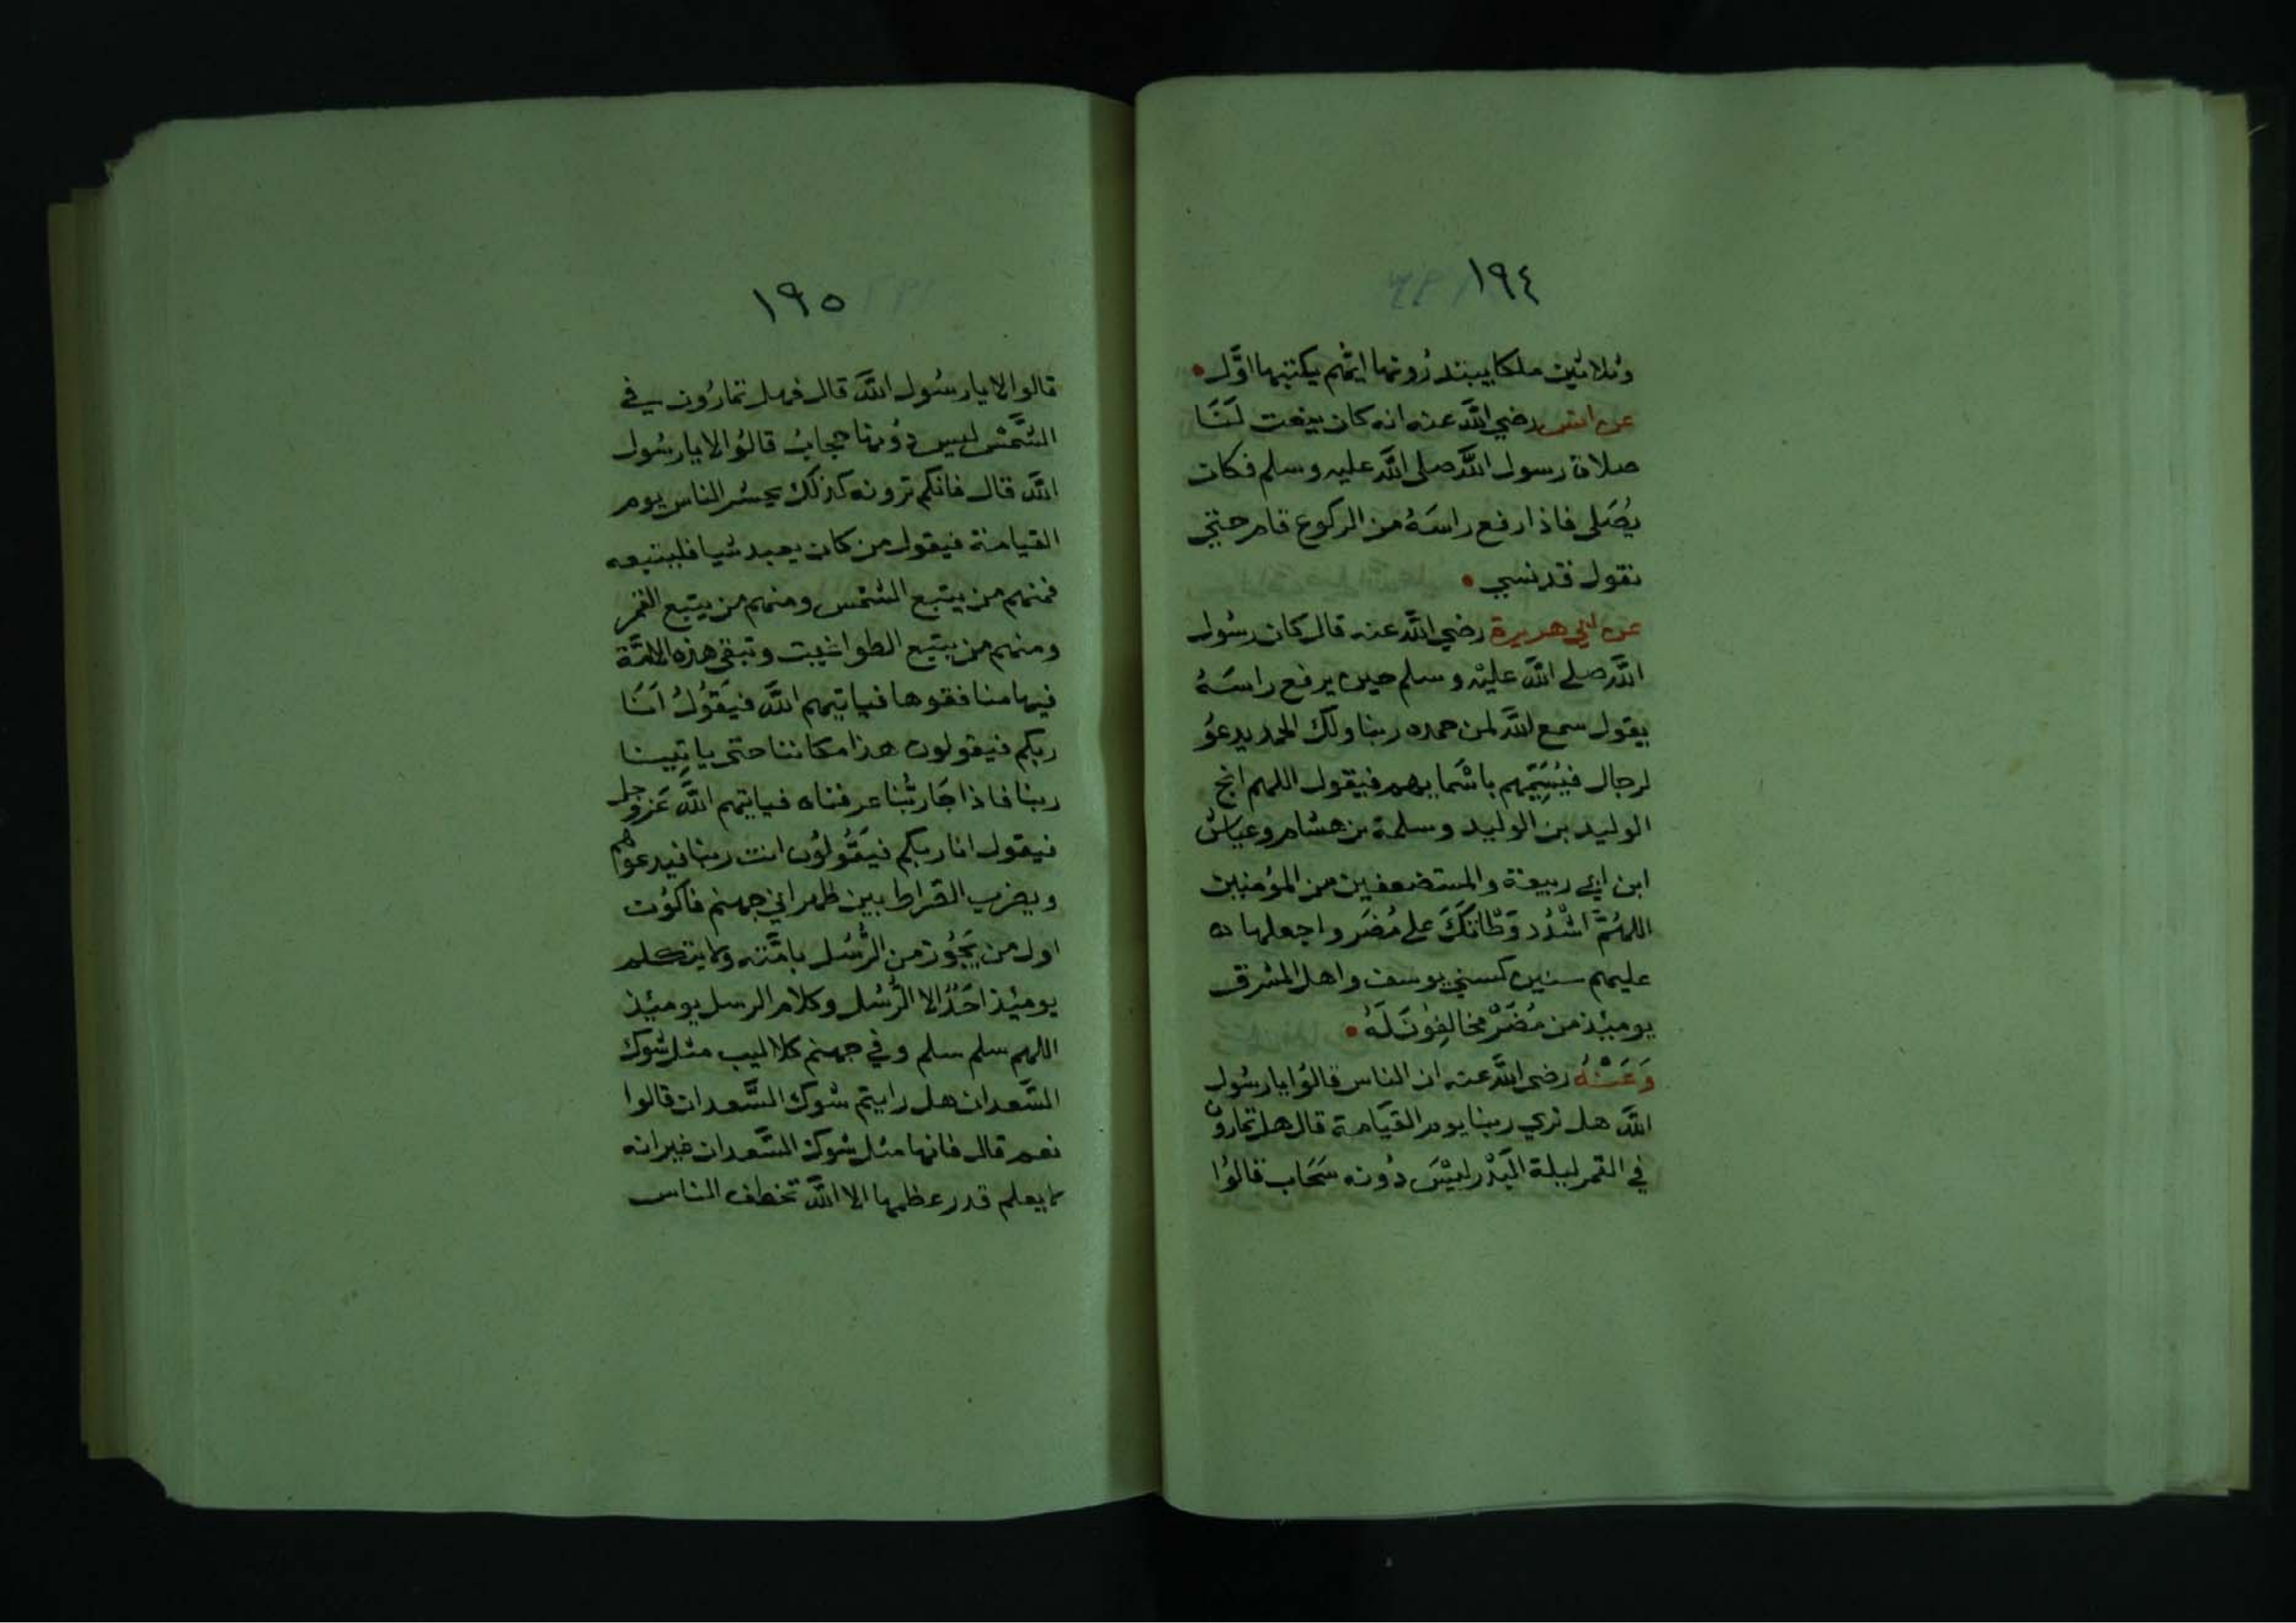 ١٩٤
وثلاثين ملكا يبتدرونها ايهم يكتبها اوَّل
عن انس رضي اللَّه عنه انه كان ينعت لَنَا
صلاة رسول اللَّه صلى اللَّه عليه وسلم فكان
يُصَلى فاذا رفع راسَهُ من الركوع قام حتي
نقول قد نسي
عن ابي هريرة رضي اللَّه عنه قال كان رسُول
اللَّه صلى اللَّه عليْه وسلم حين يرفع راسَهُ
يقول سمع اللَّه لمن حمده ربنا ولك الحمد يدعوُ
لرجال فيُسَمِّيهم باسْمايهم فيقول اللهم انج
الوليد بن الوليد وسلمة بن هشام وعياش
ابن ابي ربيعة والمستضعفين من المؤمنين
اللهُمَّ اشْدُد وَطْاتَكَ على مُضَر واجعلها
عليهم سنين كسني يوسف واهل المشرق
يوميْذ من مُضَرْ مخالِفوُنَ لَهُ
وَعَنْهُ رضى اللَّه عنه ان الناس قالوُا يا رسُول
اللَّه هل نري ربنا يوم القيَامة قال هل تمارون
في القمر ليلة البَدْر ليْسَ دُونه سَحَاب قالوُا
١٩٥
قالوا لا يا رسُول اللَّه قال فهل تمارُون في
الشَّمْس ليس دوُنها حجابُ قالوُا لا يا رسُول
اللَّه قال فانكم ترونه كذلك يحشر الناس يوم
القيامة فيقول من كان يعبد شيا فليتبعه
فمنهم من يتبع الشمس ومنهم من يتبع القمر
ومنهم من يتبع الطواغيت وتبقى هذه الامَّة
فيها منافقوها فياتيهم اللَّه فيَقوُلُ اَنَا
ربكم فيقولون هذا مكاننا حتى ياتِيينا
ربنا فاذا جَا ربُّنا عرفناه فياتيهم اللَّه عَز وجل
فيقول انا ربكم فيَقُولوُن انت ربنا فيدعوهم
ويضرب الصّراط بين ظهراني جهنم فاكوُن
اول من يَجُوز من الرُّسُل بامَّته ولا يتكلم
يوميْذ احَدٌ الا الرُّسُل وكلام الرسل يوميْذ
اللهم سلم سلم وفي جهنم كلاليب مثل شوك
السَّعدان هل رايتم شوك السَّعدان قالوا
نعم قال فانها مثل شوك السَّعدان غير انه
لا يعلم قدر عظمها الا اللَّه تخطف الناس